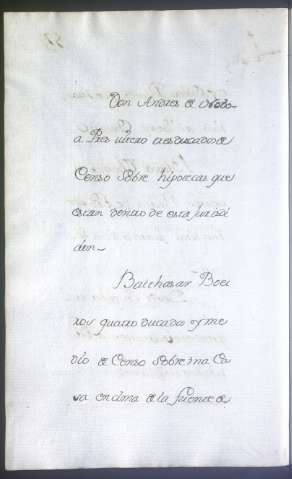 Don Andres de Nobo-
a Pres vitero tres ducados de
Censo sobre hipotecas que
estan dentro de esta jurisdi
cion-
Balthasar Boei
ros quatro ducados y me
dio de Censo sobre una Ca
sa encima de la fuente de